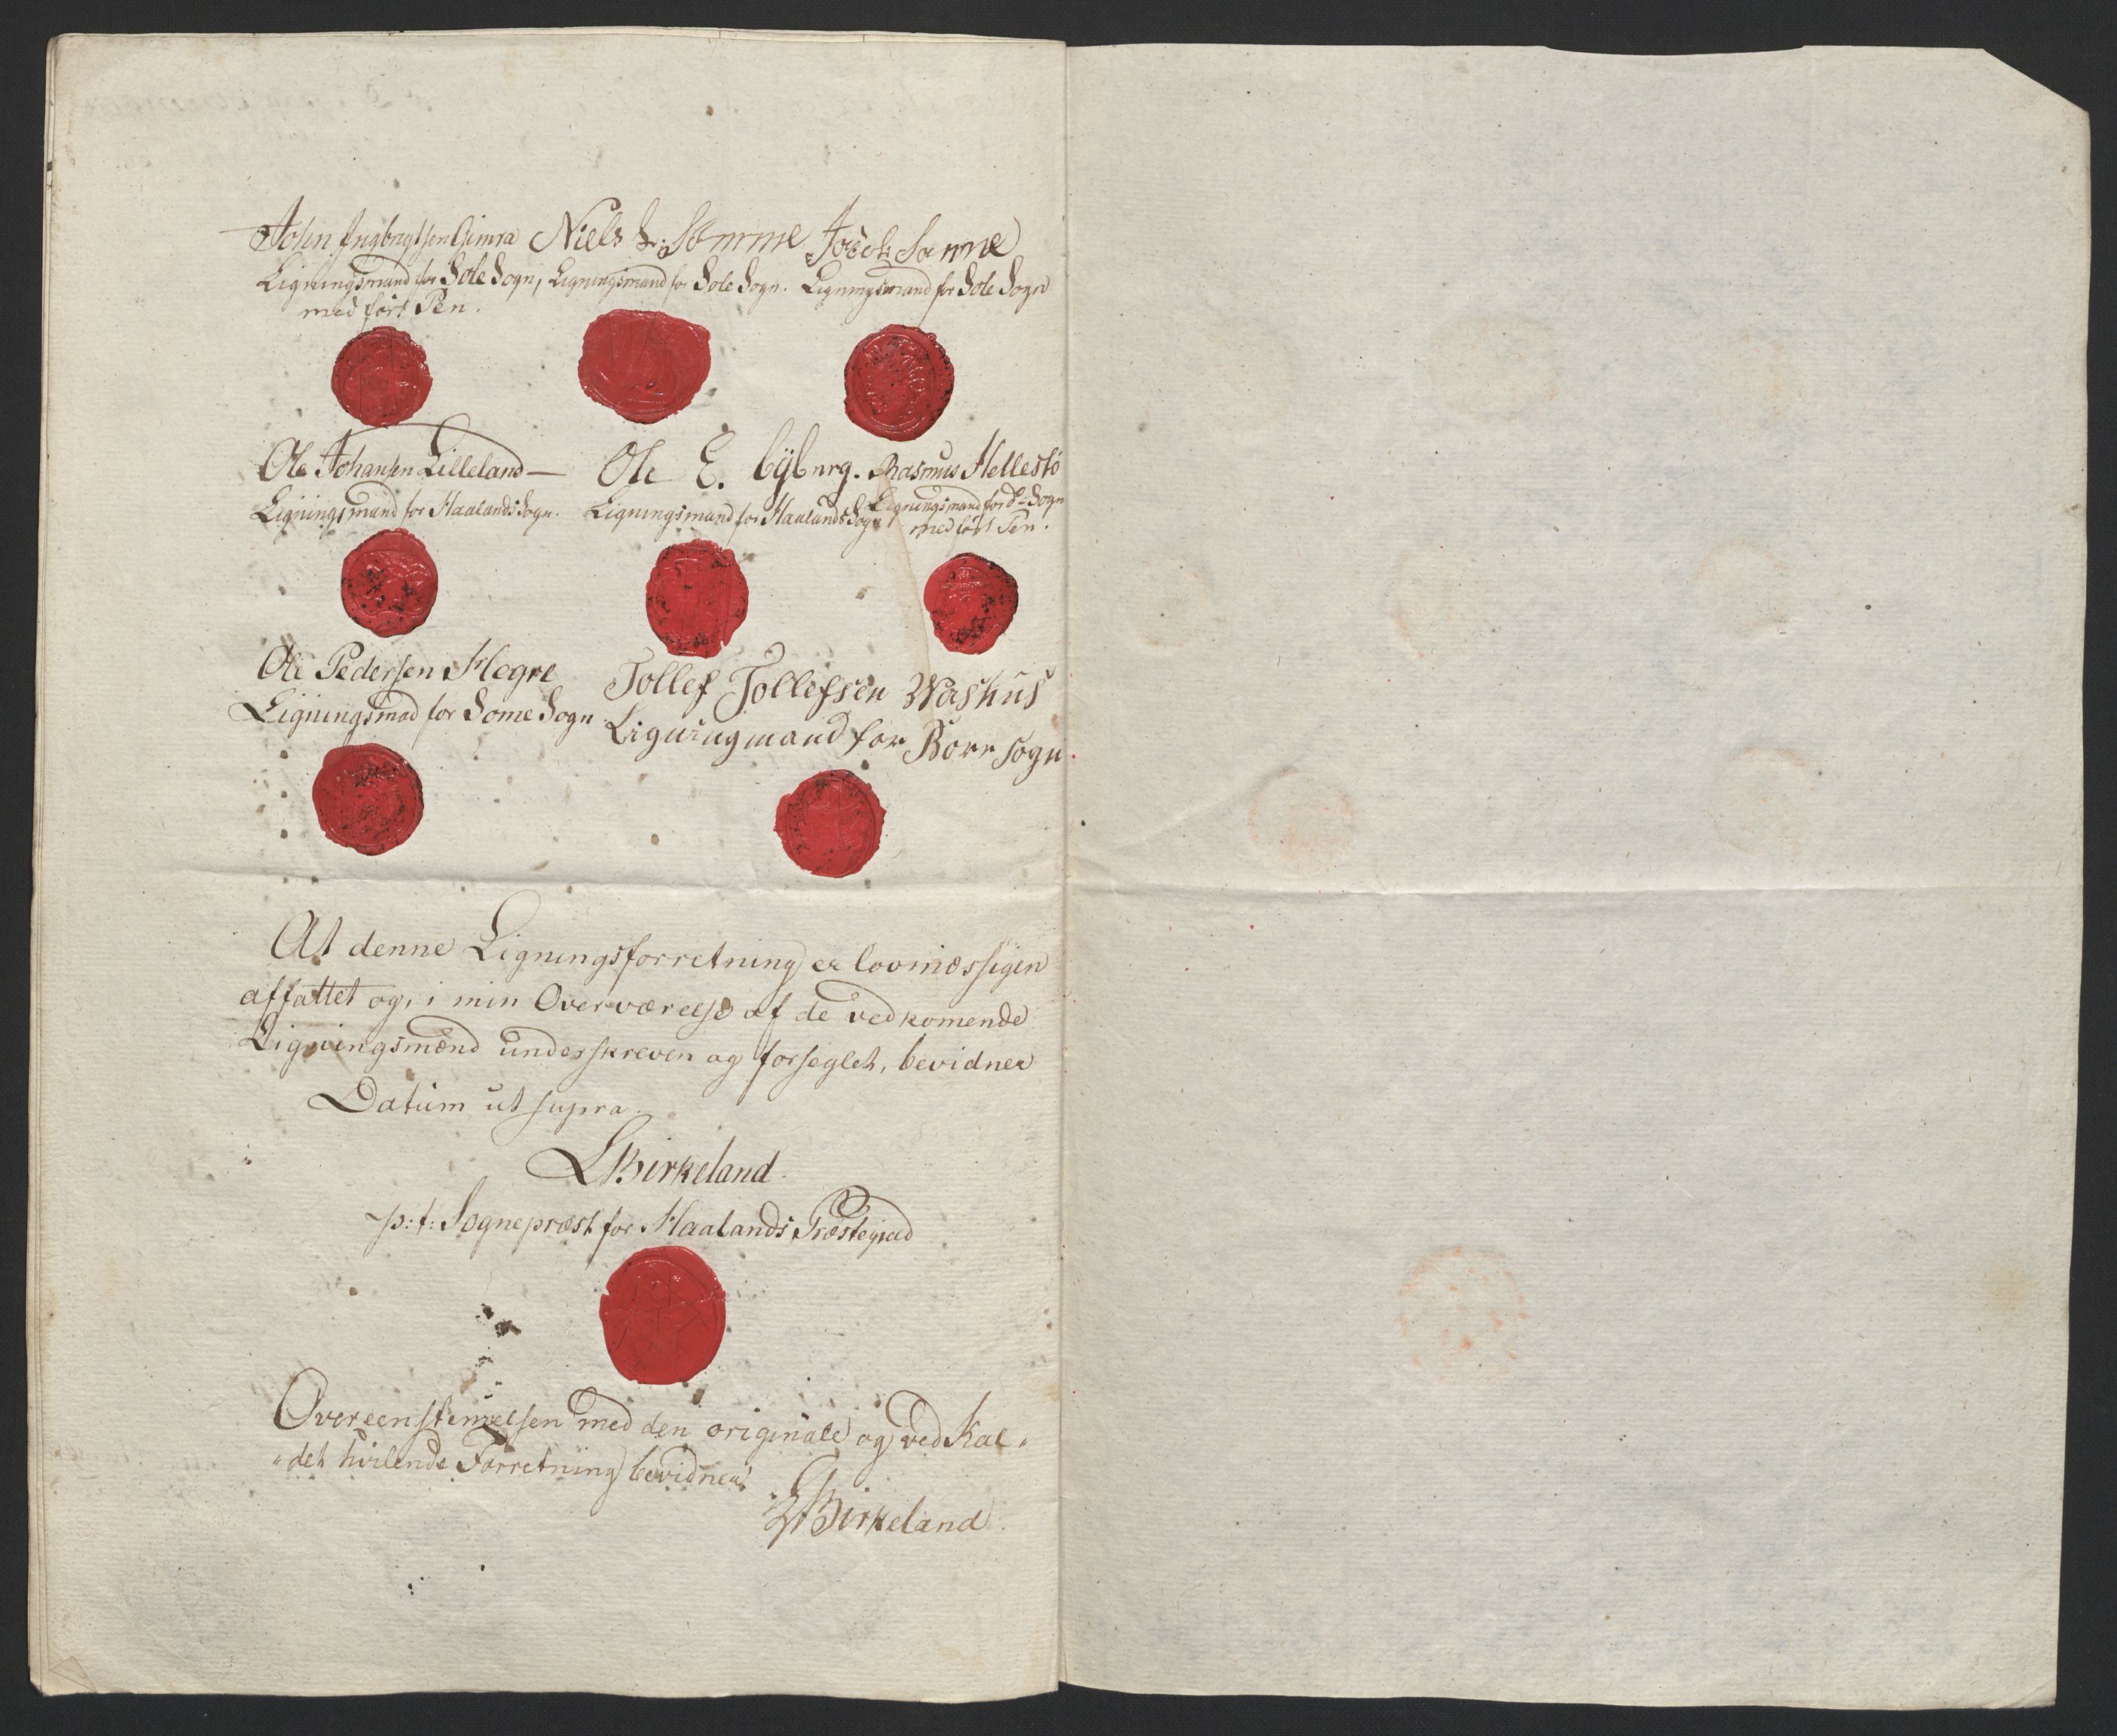 John Ingbregtsen Gimra Niels Sømme Jacob Sømme
Ligningsmand for Sole Sogn, Ligningsmand for Sole Sogn. Ligningsmand for Sole Sogn
med ført Pen.
Ole Johansen Lilleland — Ole E. Byberg. Rasmus Hellestö
Ligningsmand for Haalands Sogn. Ligningsmand for Haalands Sogn Ligningsmand for Do Sogn
med ført Pen.
Ole Pedersen Hegre Tollef Tollefsen Washus
Ligningsmad for Some Sogn Ligningmand for Bore sogn.
At denne Ligningsforretning er lovmæssigen
affattet og, i min Overværelse af de vedkomende
Ligningsmænd underskreven og forseglet, bevidner
Datum ut supra.
LBirkeland.
p: t: Sognepræst for Haalands Præstegield
Overeenstemelsen med den originale og ved Kal„
„det hvilende Forretning bevidner
LBirkeland.